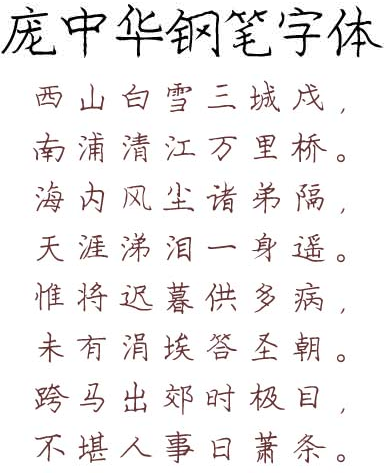 庞中华钢笔字体
西山白雪三城戍,
南浦清江万里桥。
海内风尘诸弟隔,
天涯涕泪一身遥。
惟将迟暮供多病,
未有涓埃答圣朝。
跨马出郊时极目,
不堪人事日萧条。